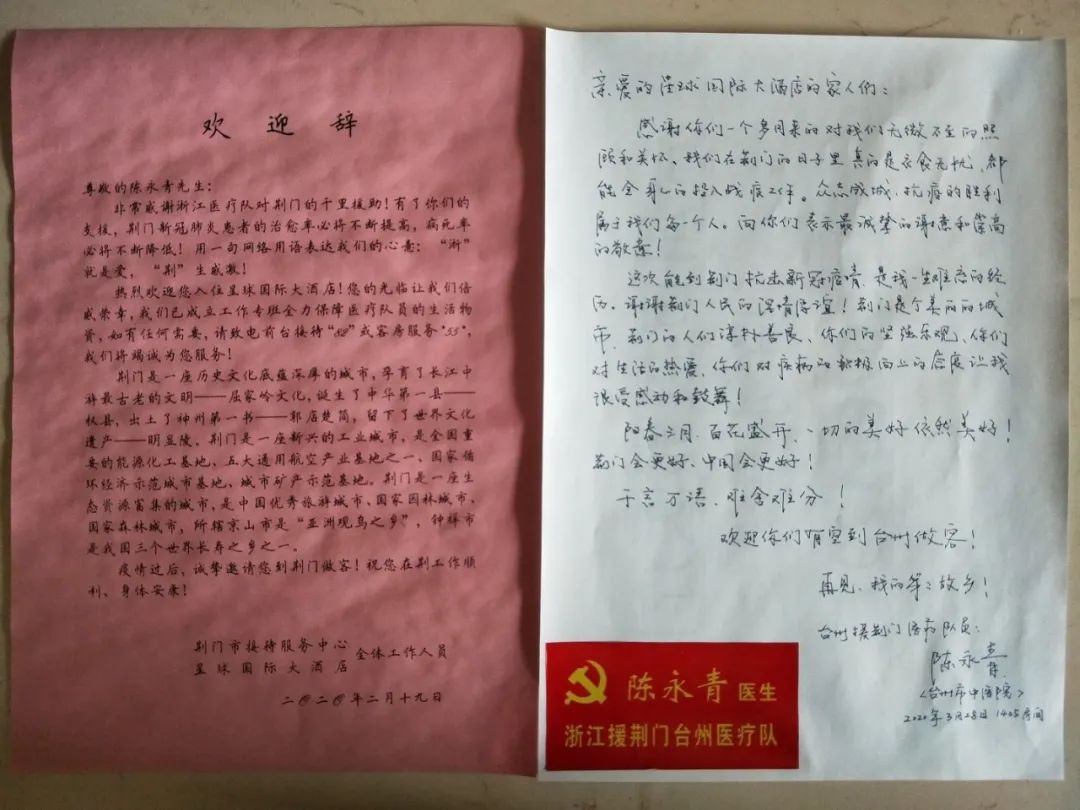 欢迎辞
尊敬的陈永青先生：
非常感谢浙江医疗队对荆门的千里援助！有了你们的
支援，荆门新冠肺炎患者的治愈率必将不断提高，病死率
必将不断降低！用一句网络用语表达我们的心意：“浙”
就是爱，“荆”生感激！
热烈欢迎您入住星球国际大酒店！您的光临让我们倍
感荣幸，我们已成立工作专班全力保障医疗队员的生活物
资，如有任何需要，请致电前台接待“50”或客房服务“55”，
我们将竭诚为您服务！
荆门是一座历史文化底蕴深厚的城市，孕育了长江中
游最古老的文明——屈家岭文化，诞生了中华第一县——
权县，出土了神州第一书——郭店楚简，留下了世界文化
遗产——明显陵。荆门是一座新兴的工业城市，是全国重
要的能源化工基地、五大通用航空产业基地之一、国家循
环经济示范城市基地、城市矿产示范基地。荆门是一座生
态资源富集的城市，是中国优秀旅游城市、国家园林城市、
国家森林城市，所辖京山市是“亚洲观鸟之乡”，钟祥市
是我国三个世界长寿之乡之一。
疫情过后，诚挚邀请您到荆门做客！祝您在荆工作顺
利、身体安康！
荆门市接待服务中心
星球国际大酒店
全体工作人员
二〇二〇年二月十九日
亲爱的星球国际大酒店的家人们：
感谢你们一个多月来的对我们无微不至的照
顾和关怀、我们在荆门的日子里真的是衣食无忧、都
能全身心的投入战疫工作。众志成城、抗疫的胜利
属于我们每一个人。向你们表示最诚挚的谢意和崇高
的敬意！
这次能到荆门抗击新冠疫情、是我一生难忘的经
历、谢谢荆门人民的深情厚谊！荆门是个美丽的城
市、荆门的人们淳朴善良、你们的坚强乐观、你们
对生活的热爱、你们对疾病的积极向上的态度让我
很受感动和鼓舞！
阳春三月、百花盛开、一切的美好依然美好！
荆门会更好、中国会更好！
千言万语、难舍难分！
欢迎你们有空到台州做客！
再见、我的第二故乡！
台州援荆门医疗队员：
陈永青
<台州市中医院>
2020年3月28日 1405房间
陈永青 医生
浙江援荆门台州医疗队